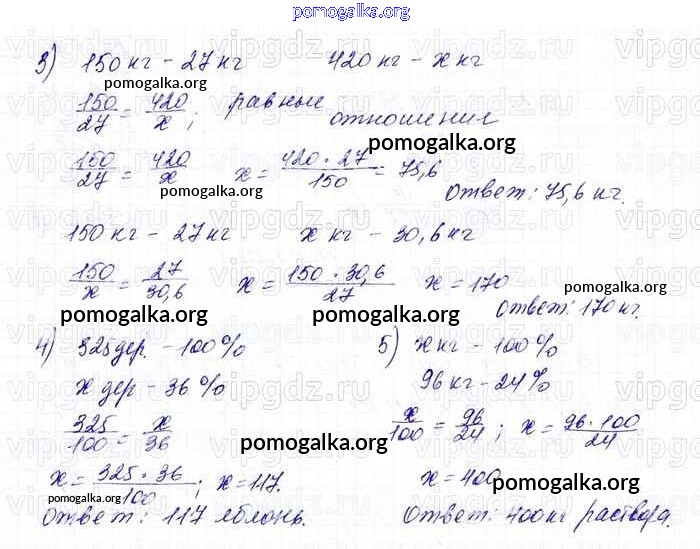 pomogalka.org
3) 150 кг – 27 кг 420 кг – x кг
pomogalka.org
150/27 = 420/x; равные
отношения
pomogalka.org
150/27 = 420/x x = 420 · 27/150 = 75,6
pomogalka.org
Ответ: 75,6 кг.
150 кг – 27 кг x кг – 30,6 кг
150/x = 27/30,6 x = 150 · 30,6/27 x = 170
pomogalka.org
Ответ: 170 кг.
pomogalka.org pomogalka.org
4) 325 дер. – 100 % 5) x кг – 100 %
x дер – 36 % 96 кг – 24 %
pomogalka.org
325/100 = x/36 x/100 = 96/24; x = 96 · 100/24
pomogalka.org
x = 325 · 36/100; x = 117. x = 400
pomogalka.org pomogalka.org
Ответ: 117 яблонь. Ответ: 400 кг раствора.
vipgdz.ru